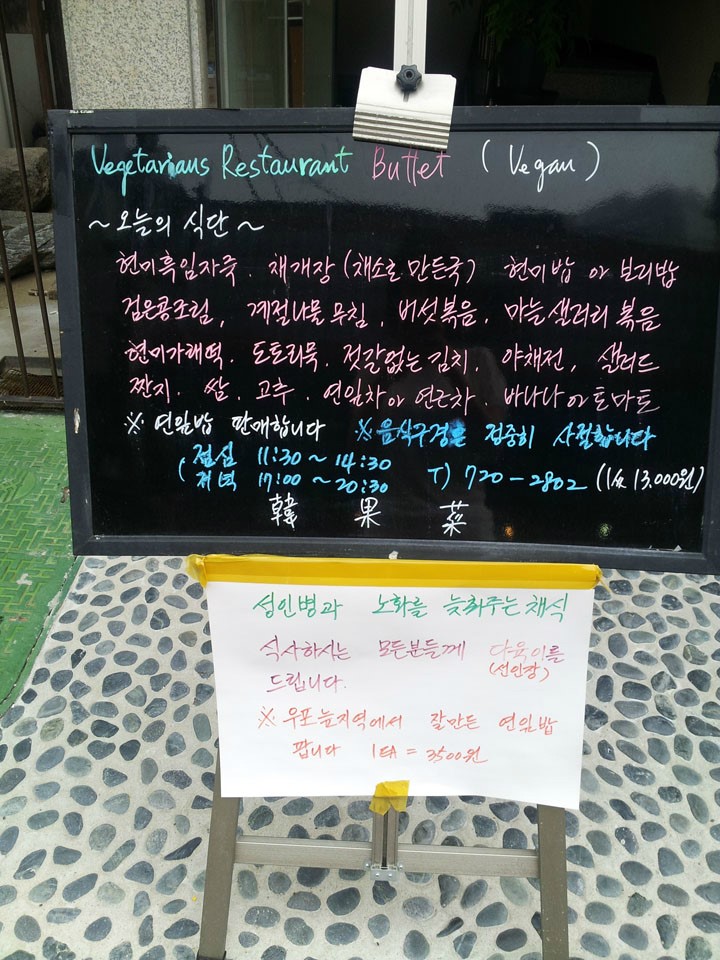 Vegetarians Restaurant Buffet (Vegan)
~ 오늘의 식단 ~
현미흑임자죽. 채개장 (채소로 만든국) 현미밥 or 보리밥
검은콩조림, 계절나물 무침, 버섯볶음. 마늘샐러리 볶음
현미가래떡. 도토리묵. 젓갈없는 김치. 야채전, 샐러드
짠지. 쌈. 고추. 연잎차 or 연근차. 바나나 or 토마토
※ 연잎밥 판매합니다 ※ 음식구경은 정중히 사절합니다
( 점심 11:30 ~ 14:30
저녁 17:00 ~ 20:30 T) 720-2802 (1人 13,000원)
韓 果 菜
성인병과 노화를 늦춰주는 채식
식사하시는 모든분들께 다육이를
(선인장)
드립니다.
※ 우포늪지역에서 잘만든 연잎밥
팝니다 1EA = 3500원